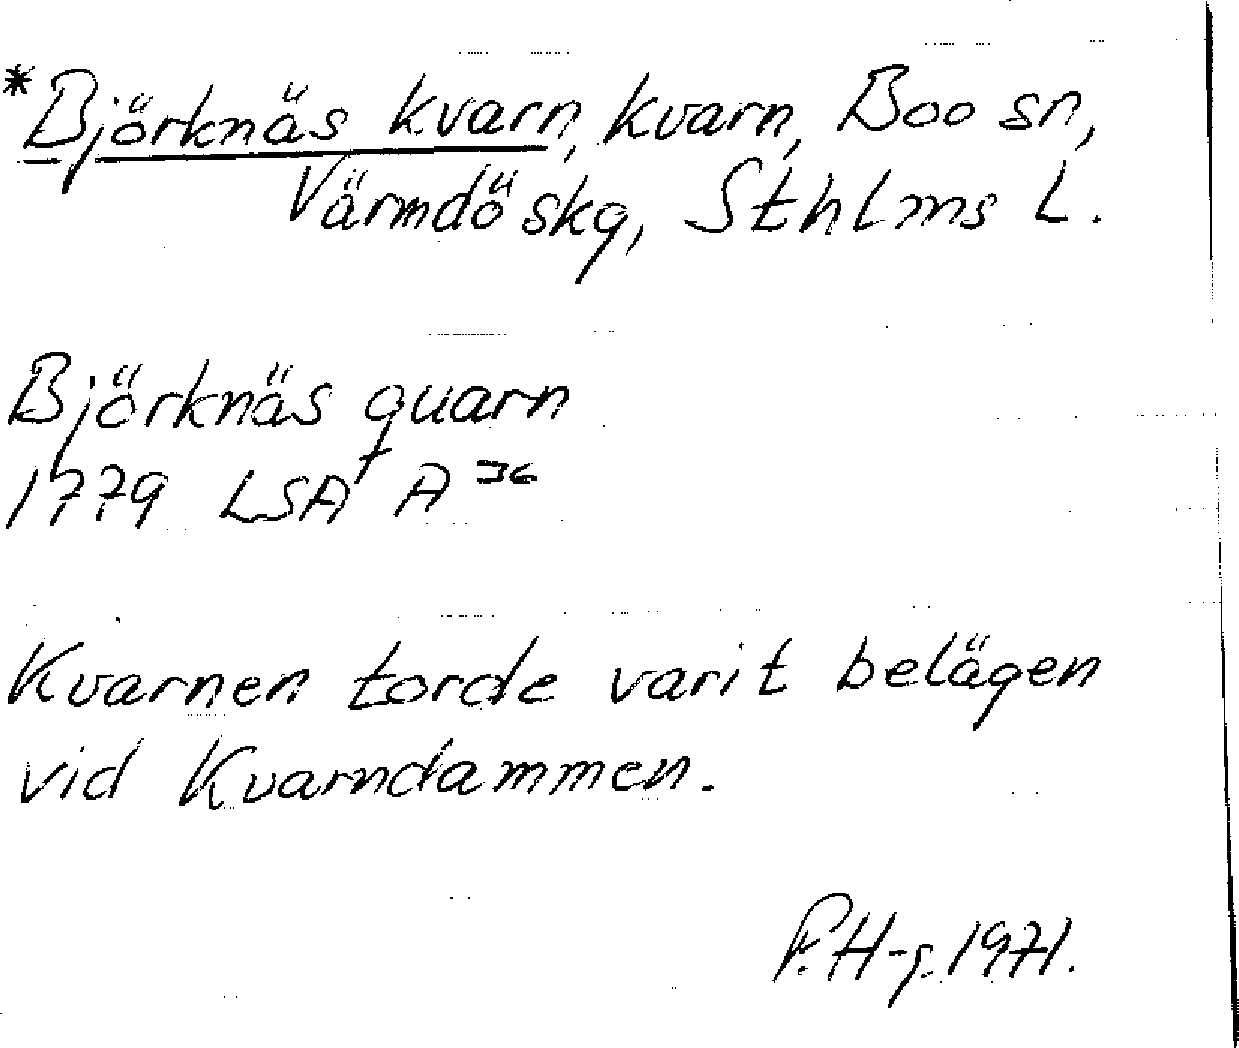 *Björknäs kvarn, kvarn, Boo sn,
Värmdö skg, Sthlms L.
Björknäs quarn
1779 LSA A 36
Kvarnen torde varit belägen
vid Kvarndammen.
P.H-g. 1971.